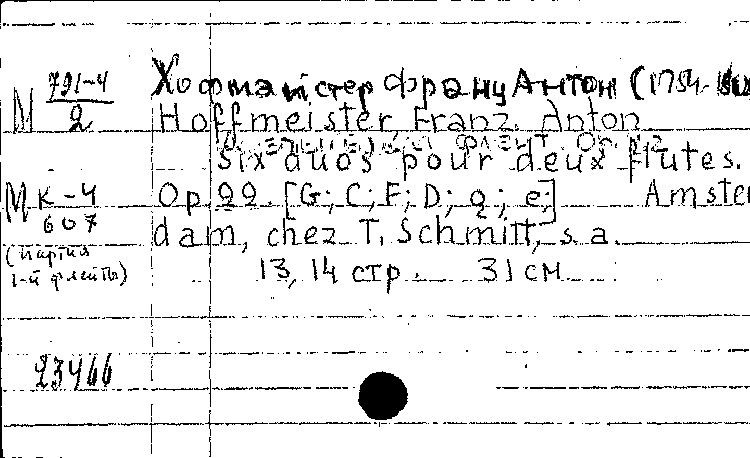 М 791-4/2
Хофмайстер Франц Антон (1754-
Hoffmeister Franz Anton
Six duos pour deux flutes.
М К-4 607
Op 22. [G; C; F; D; g; e;] Amster
dam, chez T. Schmitt, s. a.
(партия 1-й флейты)
13, 14 стр. 31 см
23466